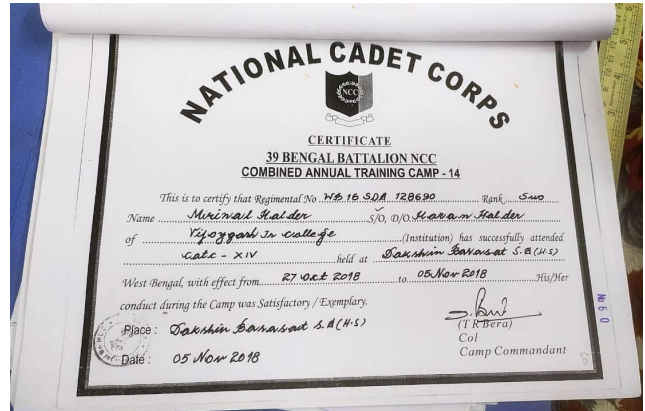 NATIONAL CADET CORPS
NCC
CERTIFICATE
39 BENGAL BATTALION NCC
COMBINED ANNUAL TRAINING CAMP - 14
This is to certify that Regimental No. WB 16 SDA 128690 Rank SUO
Name Mrinal Halder S/O, D/O Haran Halder
of Vijoygarh Jr College (Institution) has successfully attended
CATC - XIV held at Dakshin Barasat S.A (H.S)
West Bengal, with effect from 27 Oct 2018 to 05 Nov 2018 His/Her
conduct during the Camp was Satisfactory / Exemplary.
Place : Dakshin Barasat S.A (H.S)
(T R Bera)
Col
Date : 05 Nov 2018
Camp Commandant